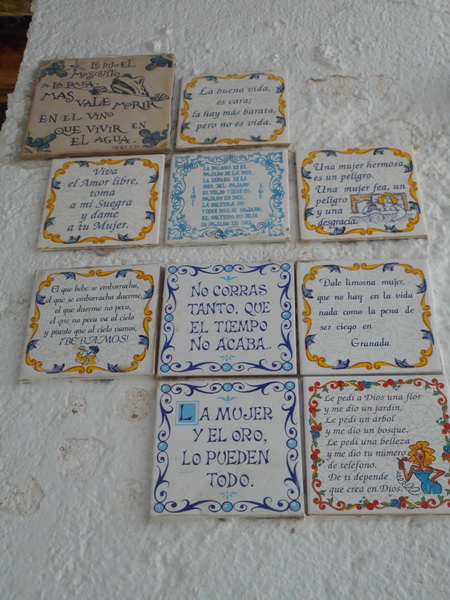 LE DIJO EL
MOSQUITO
A LA RANA
MAS VALE MORIR
EN EL VINO
QUE VIVIR EN
EL AGUA.
La buena vida,
es cara;
la hay más barata,
pero no es vida.
Viva
el Amor libre,
toma
a mi Suegra
y dame
a tu Mujer.
ES EL
PAJARO DE LA PAZ,
ES LA
PAZ DEL PAJARO
EL VIEJO TIENE EL
PAJARO EN PAZ.
LA SOLTERA NO
TIENE PAZ NI PAJARO.
EL SOLTERO NO DEJA
EL PAJARO EN PAZ.
Una mujer hermosa
es un peligro.
Una mujer fea, un
peligro
y una
desgracia.
El que bebe se emborracha,
el que se emborracha duerme,
el que duerme no peca,
el que no peca va al cielo
y puesto que al cielo vamos,
¡BEBAMOS!
NO CORRAS
TANTO, QUE
EL TIEMPO
NO ACABA..
Dale limosna mujer,
que no hay en la vida
nada como la pena de
ser ciego en
Granada.
LA MUJER
Y EL ORO,
LO PUEDEN
TODO.
Le pedí a Dios una flor
y me dio un jardín.
Le pedí un arbol
y me dio un bosque.
Le pedí una belleza
y me dio tu número
de teléfono.
De ti depende
que crea en Dios.